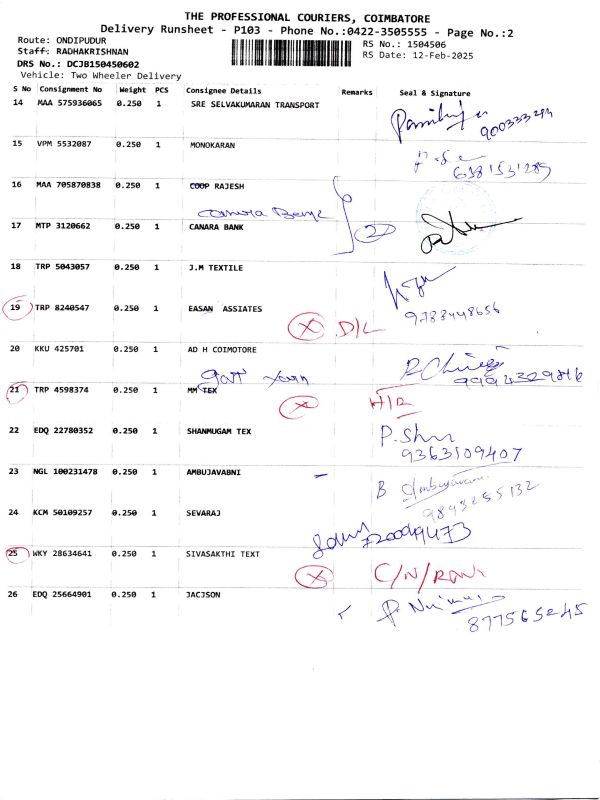 THE PROFESSIONAL COURIERS, COIMBATORE
Delivery Runsheet - P103 - Phone No.:0422-3505555 - Page No.:2
Route: ONDIPUDUR RS No.: 1504506
Staff: RADHAKRISHNAN RS Date: 12-Feb-2025
DRS No.: DCJB150450602
Vehicle: Two Wheeler Delivery
S No Consignment No Weight PCS Consignee Details Remarks Seal & Signature
14 MAA 575936065 0.250 1 SRE SELVAKUMARAN TRANSPORT
900333294
15 VPM 5532087 0.250 1 MONOKARAN
6381531289
16 MAA 705870838 0.250 1 COOP RAJESH
Canara Bank
2
17 MTP 3120662 0.250 1 CANARA BANK
18 TRP 5043057 0.250 1 J.M TEXTILE
9783448656
19 TRP 8240547 0.250 1 EASAN ASSIATES
X D/L
20 KKU 425701 0.250 1 AD H COIMOTORE
9994329816
21 TRP 4598374 0.250 1 MM TEX
X H/R
22 EDQ 22780352 0.250 1 SHANMUGAM TEX
9363109407
23 NGL 100231478 0.250 1 AMBUJAVABNI
B
9843255132
24 KCM 50109257 0.250 1 SEVARAJ
25 WKY 28634641 0.250 1 SIVASAKTHI TEXT
X
26 EDQ 25664901 0.250 1 JACJSON
877565245